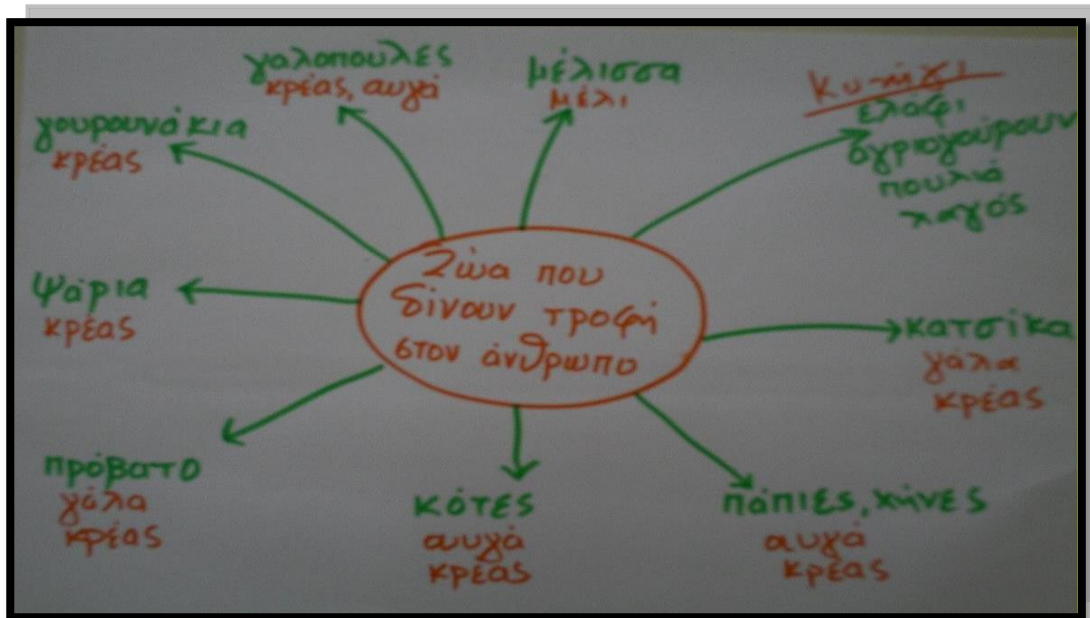 Ζώα που
δίνουν τροφή
στον άνθρωπο
γαλοπούλες
κρέας, αυγά
μέλισσα
μέλι
Κυνήγι
ελάφι
αγριογούρουν
πουλιά
λαγός
κατσίκα
γάλα
κρέας
πάπιες, χήνες
αυγά
κρέας
κότες
αυγά
κρέας
πρόβατο
γάλα
κρέας
ψάρια
κρέας
γουρουνάκια
κρέας